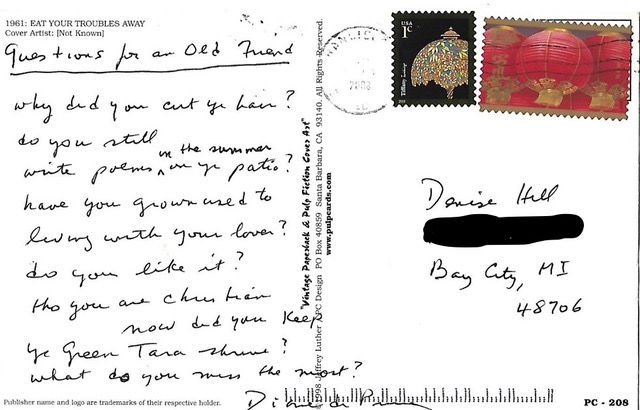 1961: EAT YOUR TROUBLES AWAY
Cover Artist: [Not Known]
Questions for an Old Friend
why did you cut yr hair?
do you still
in the summer
write poems ^ on yr patio?
have you grown used to
living with your lover?
do you like it?
tho you are Christian
now did you keep
yr Green Tara shrine?
what do you miss the most?
Diane di Prima
Publisher name and logo are trademarks of their respective holder.
"Vintage Paperback & Pulp Fiction Cover Art"
www.pulpcards.com
1998 Jeffrey Luther / PC Design PO Box 40859 Santa Barbara, CA 93140. All Rights Reserved.
USA
1c
Tiffany Lamp
Denise Hill
Bay City, MI
48706
PC - 208